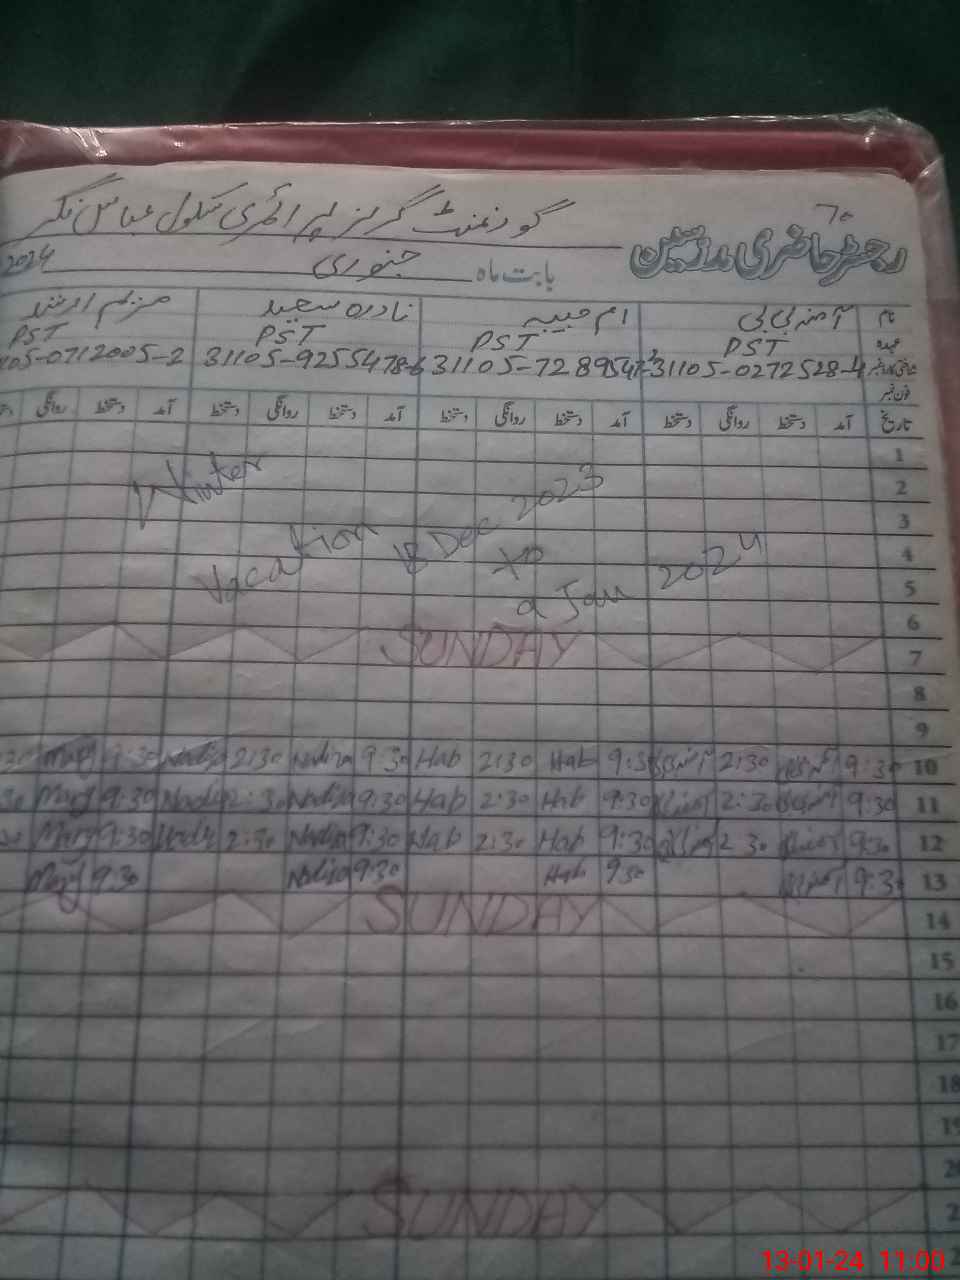 گورنمنٹ گرلز پرائمری سکول عباس نگر
رجسٹر حاضری مدرسین
بابت ماہ جنوری 2024
نام آمنہ بی بی ام حبیبہ نادرہ سعید مریم ارشد
عہدہ PST PST PST PST
31105-0272528-4 31105-9255478-6 105-0712005-2
فون نمبر
تاریخ آمد دستخط روانگی دستخط آمد دستخط روانگی دستخط آمد دستخط روانگی دستخط آمد دستخط روانگی
1
2
Winter
3
Vacation 18 Dec 2023
4
to
5
9 Jan 2024
6
7 SUNDAY
8
9
10 9:30 2:30 9:30 Hab 2:30 Hab 9:30 Nadira 2:30 Nadira 9:30 Mary
11 9:30 2:30 9:30 Hab 2:30 Hab 9:30 Nadira 2:30 Nadira 9:30 Mary
12 9:30 2:30 9:30 Hab 2:30 Hab 9:30 Nadira 2:30 9:30 Mary
13 9:30 9:30 Hab 9:30 Nadira 9:30 Mary
14 SUNDAY
15
16
17
18
SUNDAY
13-01-24 11:00